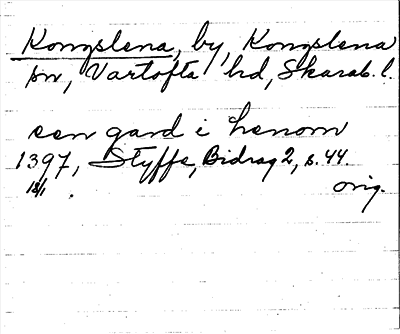 Kongslena, by, Kongslena
sn, Vartofta hd, Skarab. l.
een gard i henom
1397, Styffe, Bidrag 2, s. 44
18/1 . orig.